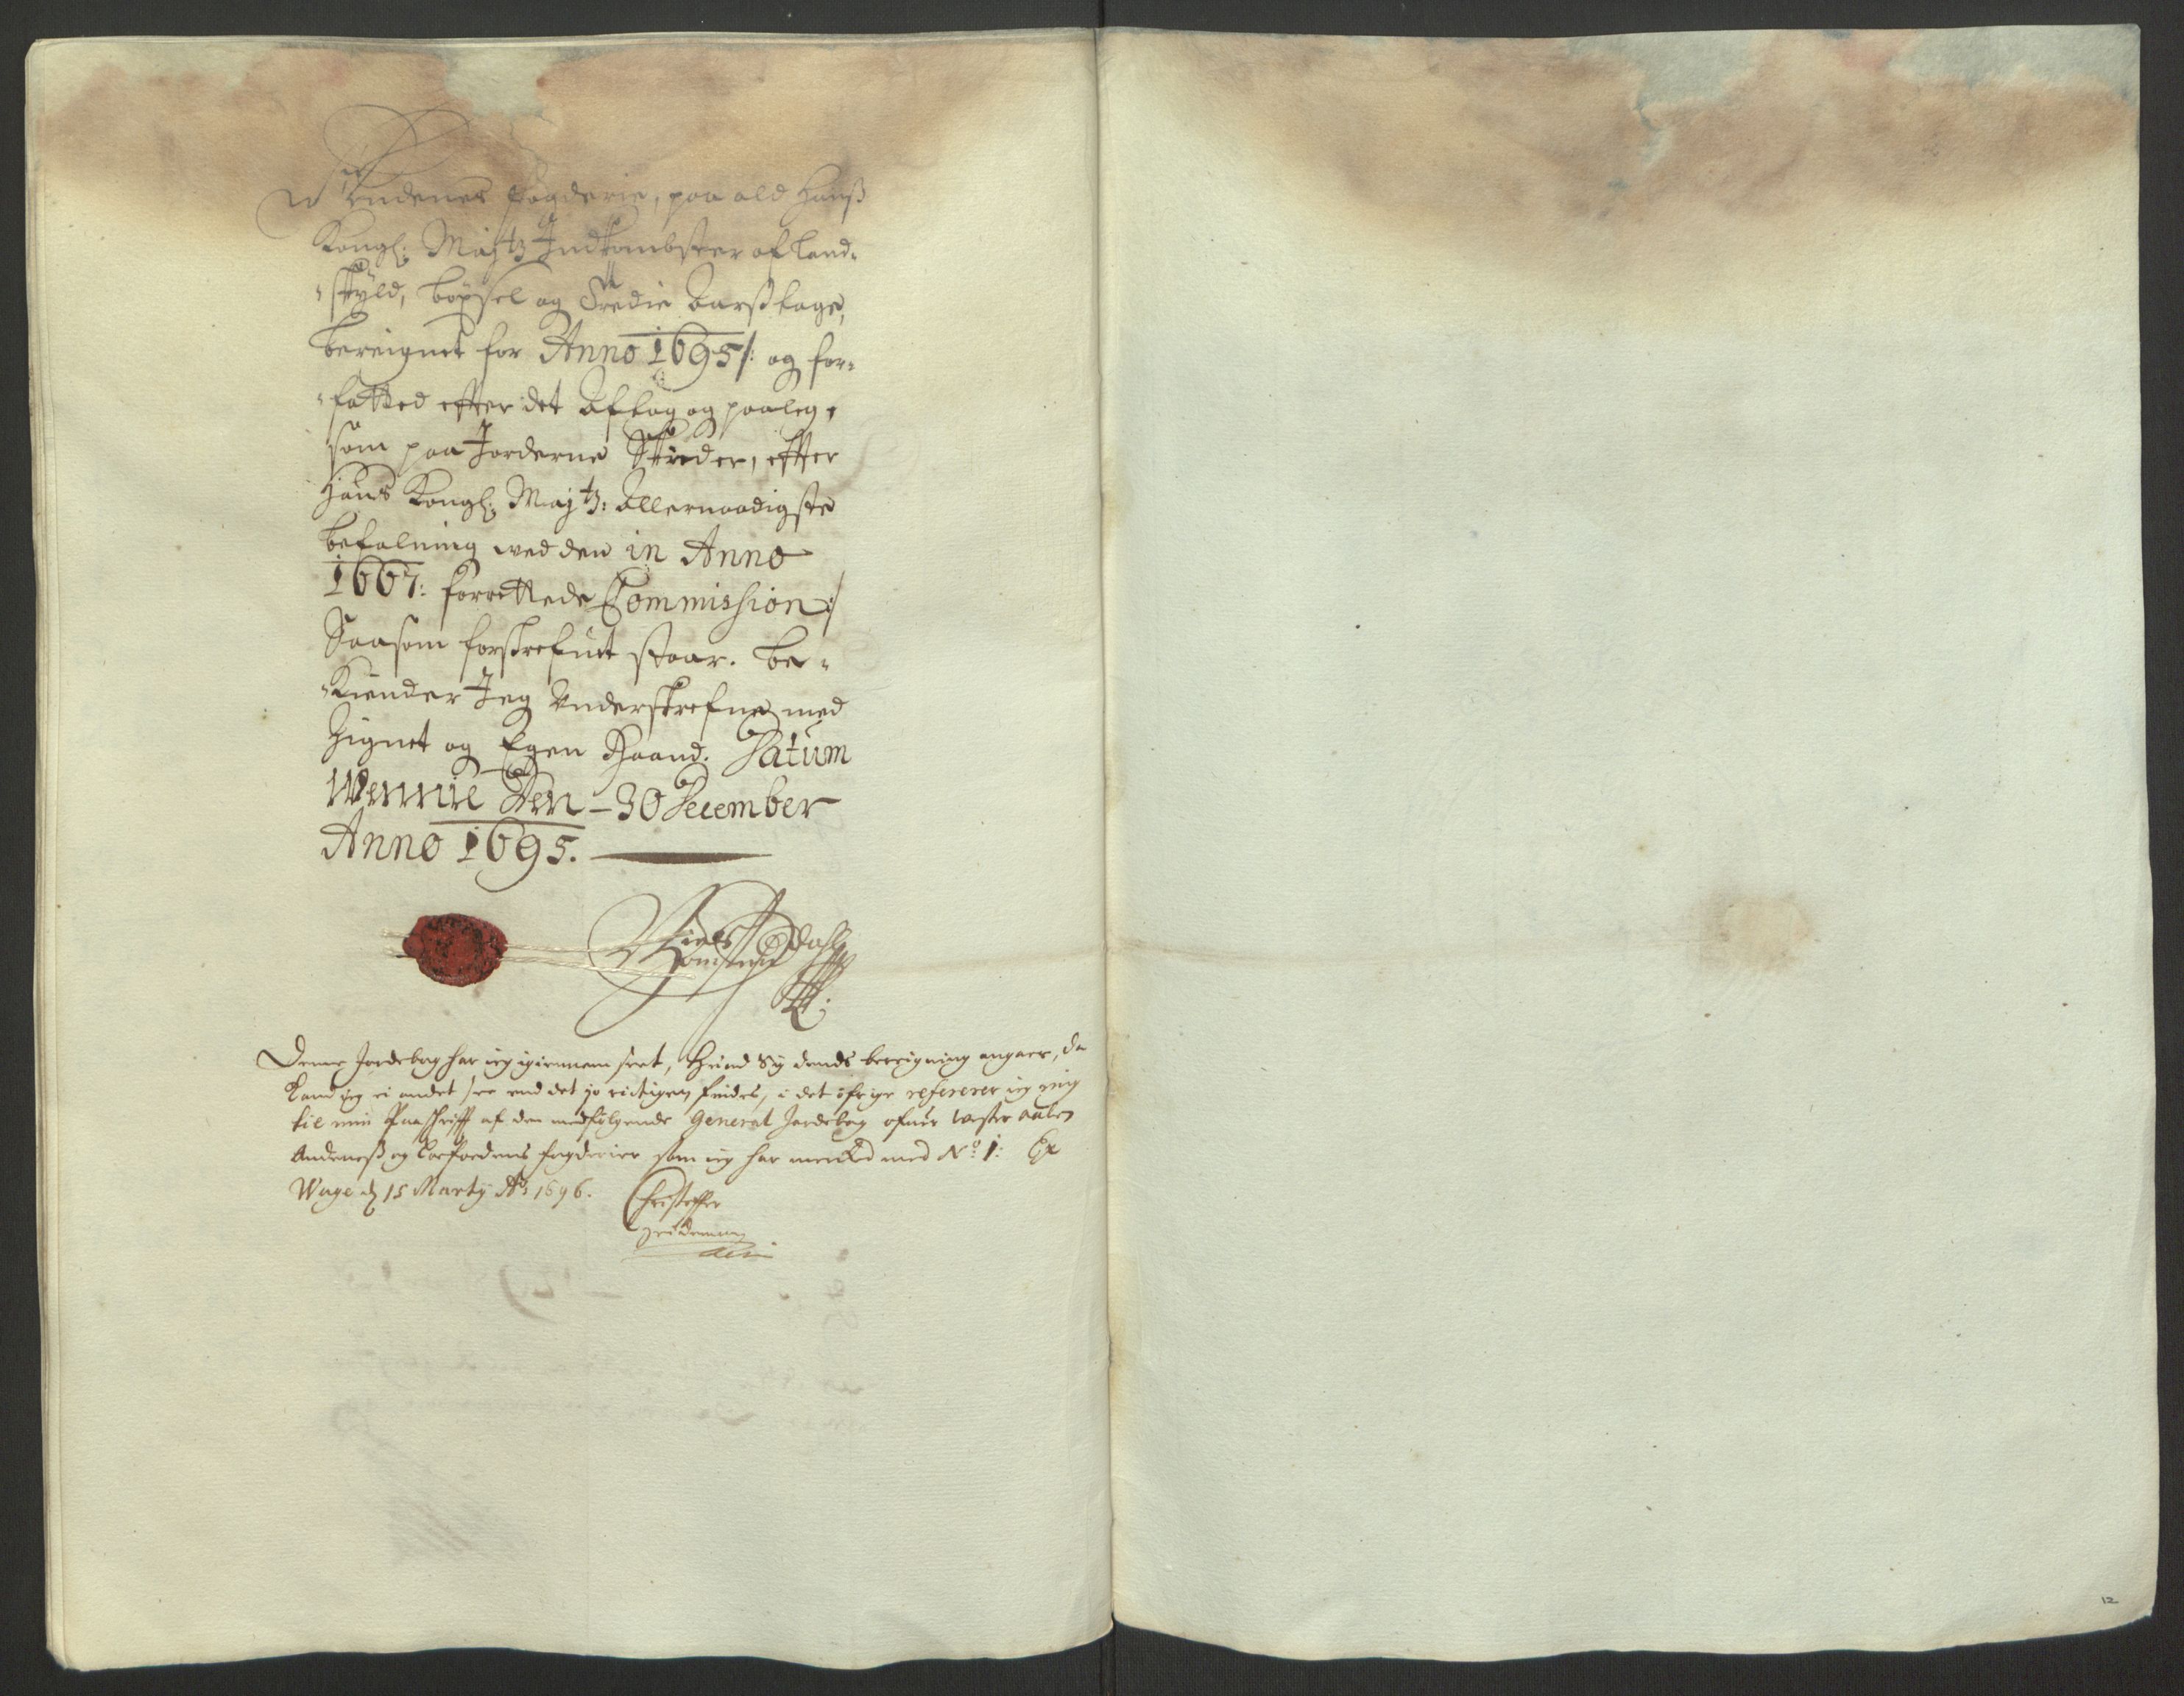 Andenes fogderie, paa ald Hanß
Kongl: Maj:tz Indkombster af Land-
skyld, böxsel og Tredie Aarß tage,
bereignet for Anno 1695/: og for-
fatted efter det Aftag og paaleg,
som paa Jorderne Skeeder, effter
Hans Kongl: Maj:tz: Allernaadigste
befalning ved den in Anno
1667: forrettede Commission:/
Saasom forskrefuet staar. be-
kiender Jeg Underskrefne med
Zignet og Egen Haand. Datum
den 30 December
Anno 1695.
Niels
Denne Jordebog har ieg igiennem seet, huad dends bereigning angaar, da
kand jeg ei andet see end det jo rictigen findes, i det öfrige refererer ieg mig
til min Paaskrifft af den medfölgende General Jordebog ofuer Westeraalen
Andeneß og fogderier som ieg har merked med No: 1: Ex
Wage d 15 Martij Ao 1696.
Christoffer
Heideman